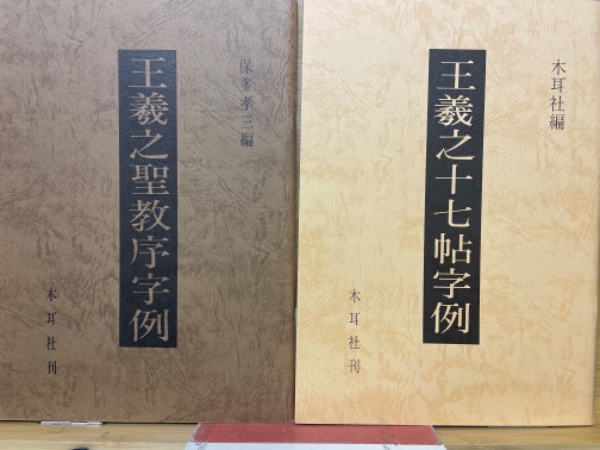 保多孝三編
王羲之聖教序字例
木耳社刊
木耳社編
王羲之十七帖字例
木耳社刊